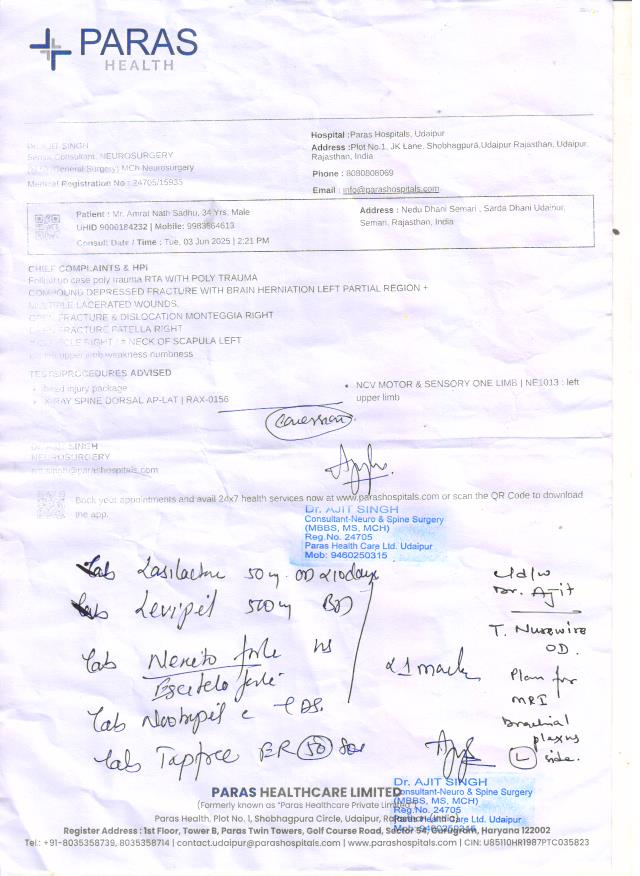 PARAS
HEALTH
Dr. AJIT SINGH
Senior Consultant, NEUROSURGERY
(General Surgery) MCh Neurosurgery
Medical Registration No : 24705/15935
Hospital :Paras Hospitals, Udaipur
Address :Plot No.1, JK Lane, Shobhagpura,Udaipur Rajasthan, Udaipur,
Rajasthan, India
Phone : 8080808069
Email : info@parashospitals.com
Patient : Mr. Amrat Nath Sadhu, 34 Yrs, Male
UHID 9000184232 | Mobile: 9983564613
Consult Date / Time : Tue, 03 Jun 2025 | 2:21 PM
Address : Nedu Dhani Semari , Sarda Dhani Udaipur,
Semari, Rajasthan, India
CHIEF COMPLAINTS & HPI
Follow up case poly trauma RTA WITH POLY TRAUMA
COMPOUND DEPRESSED FRACTURE WITH BRAIN HERNIATION LEFT PARTIAL REGION +
MULTIPLE LACERATED WOUNDS.
OPEN FRACTURE & DISLOCATION MONTEGGIA RIGHT
OPEN FRACTURE PATELLA RIGHT
RIGHT / # NECK OF SCAPULA LEFT
upper limb weakness numbness
TESTS/PROCEDURES ADVISED
• head injury package
• X-RAY SPINE DORSAL AP-LAT | RAX-0156
• NCV MOTOR & SENSORY ONE LIMB | NE1013 : left
upper limb
Dr. AJIT SINGH
NEUROSURGERY
@parashospitals.com
Book your appointments and avail 24x7 health services now at www.parashospitals.com or scan the QR Code to download
the app.
Dr. AJIT SINGH
Consultant-Neuro & Spine Surgery
(MBBS, MS, MCH)
Reg.No. 24705
Paras Health Care Ltd. Udaipur
Mob: 9460250315
Tab Lasilactone 50 mg OD x 10 days
Tab Levipil 500 mg BD
Tab Nenito forte HS
forte
x 1 month
Tab
Tab ER 50
Dr. Ajit
T. Nurewire
OD.
Plan for
MRI
Brachial
plexus
L side.
Dr. AJIT SINGH
Consultant-Neuro & Spine Surgery
(MBBS, MS, MCH)
Reg.No. 24705
Paras Health Care Ltd. Udaipur
Mob: 9460250315
PARAS HEALTHCARE LIMITED
(Formerly known as "Paras Healthcare Private Limited")
Paras Health, Plot No. 1, Shobhagpura Circle, Udaipur, Rajasthan (India)
Register Address : 1st Floor, Tower B, Paras Twin Towers, Golf Course Road, Sector 54, Gurugram, Haryana 122002
Tel.: +91-8035358739, 8035358714 | contact.udaipur@parashospitals.com | www.parashospitals.com | CIN: U85110HR1987PTC035823